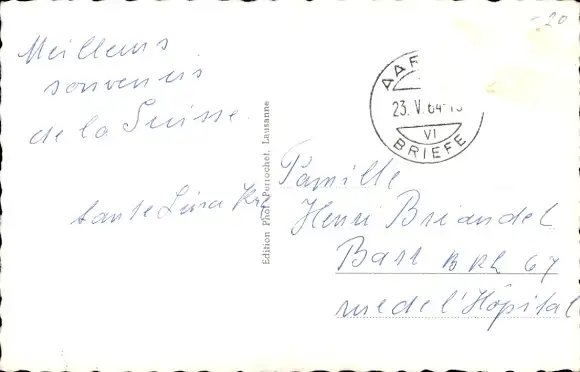 -20
Meilleurs
souvenirs
de la Suisse.
tante Lina
Edition Phot Perrochet, Lausanne
AAR
23. V. 64-1
VI
BRIEFE
Famille
Henri Briandel
Barr B Rh 67
rue de l'Hôpital